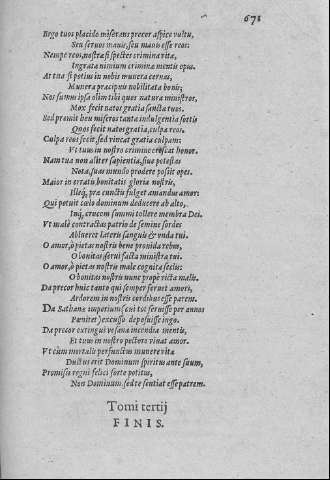 671
Ergo tuos placido miserans precor aspice vultu,
Seu seruos mauis, seu mauis esse reos:
Nempe reos, nostra si spectes crimina vitæ,
Ingrata nimium crimina mentis opus.
At tua si potius in nobis munera cernas,
Munera præcipuis nobilitata bonis;
Nos sumus ipsa olim tibi quos natura ministros,
Mox fecit natos gratia sancta tuos.
Sed premit heu miseros tanta indulgentia sortis
Quos fecit natos gratia, culpa reos.
Culpa reos fecit, sed vincat gratia culpam:
Vt tuus in nostro crimine crescat honor.
Nam tua non aliter sapientia, siue potestas
Nota, suas mundo prodere posset opes.
Maior in erratis bonitatis gloria nostris,
Illeq́, præ cunctis fulget amandus amor:
Qui potuit cœlo dominum deducere ab alto,
Inq́, crucem summi tollere membra Dei.
Vt malè contractas patrio de semine sordes
Ablueret lateris sanguis & vnda tui.
O amor, ò pietas nostris bene prouida rebus,
O bonitas serui facta ministra tui.
O amor, ò pietas nostris male cognita seclis:
O bonitas nostris nunc propè victa malis.
Da precor huic tanto qui semper feruet amori,
Ardorem in nostris cordibus esse parem.
Da Sathanæ imperium seni tot seruisse per annos
Pœnitet, excusso deposuisse iugo.
Da precor extingui vesana incendia mentis,
Et tuus in nostro pectore viuat amor.
Vt cùm mortali perfunctus munere vita
Ductus erit Dominum spiritus ante suum,
Promissi regni felici sorte potitus,
Non Dominum, sed te sentiat esse patrem.
Tomi tertij
FINIS.